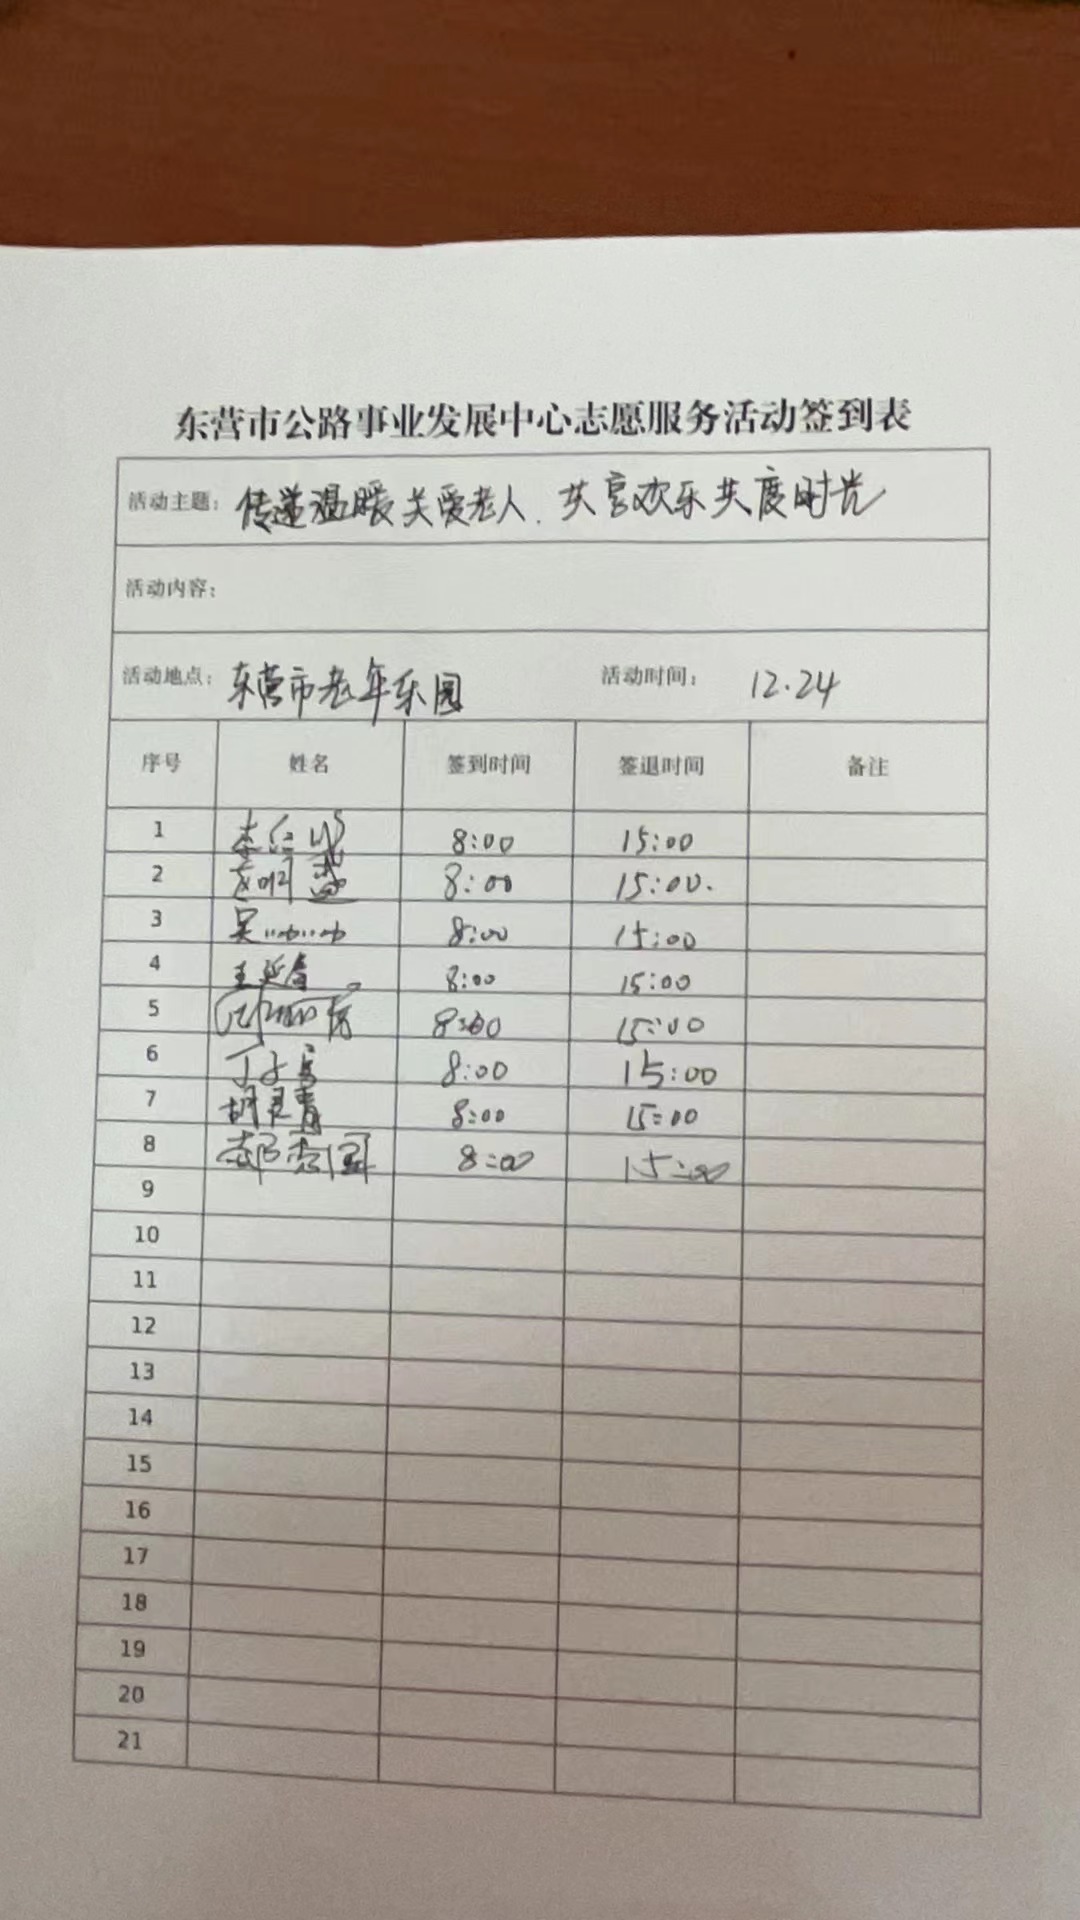 东营市公路事业发展中心志愿服务活动签到表
活动主题: 传递温暖关爱老人、共享欢乐共度时光
活动内容:
活动地点: 东营市老年乐园 活动时间: 12.24
序号 姓名 签到时间 签退时间 备注
1 李 8:00 15:00
2 8:00 15:00.
3 吴 8:00 15:00
4 王延 8:00 15:00
5 8:00 15:00
6 丁 8:00 15:00
7 胡 8:00 15:00
8 国 8:00 15:00
9
10
11
12
13
14
15
16
17
18
19
20
21